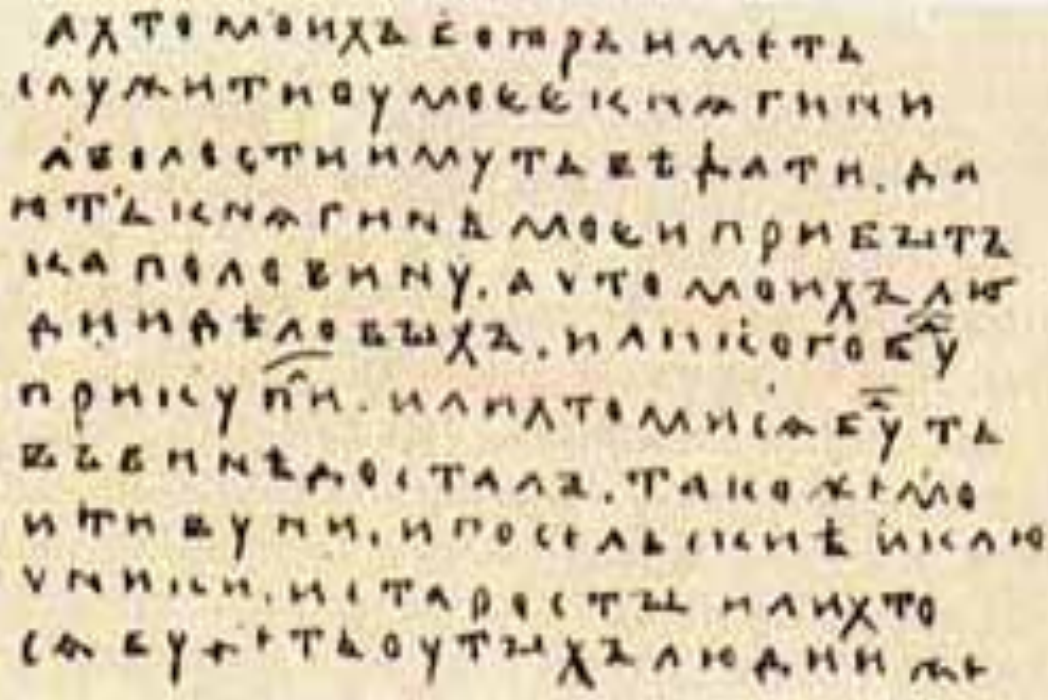 А ХТО МОИХЪ БОꙖРЪ ИМЕТЬ
СЛУЖИТИ ОУ МОЕЕ КНѦГИНИ
А ВОЛОСТИ ИМУТЬ ВѢДАТИ. ДА
ИТЬ КНѦГИНѢ МОЕИ ПРИБЫТЪ
КА ПОЛОВИНУ. А ХТО МОИХЪ ЛЮ
ДИИ ДѢЛОВЫХЪ. ИЛИ КОГО БУ
ПРИКУПИ. ИЛИ ХТО МИ СѦ БУ ТЬ
ВЪ ВИНѢ ДОСТАЛЪ. ТАКО ЖЕ МО
И ТИВУНИ. И ПОСЕЛЬСКИѢ И КЛЮ
ЧНИКИ. И СТАРОСТЫ ИЛИ ХТО
СѦ БУДЕТЬ ОУ ТЫХЪ ЛЮДИИ ЖЕ